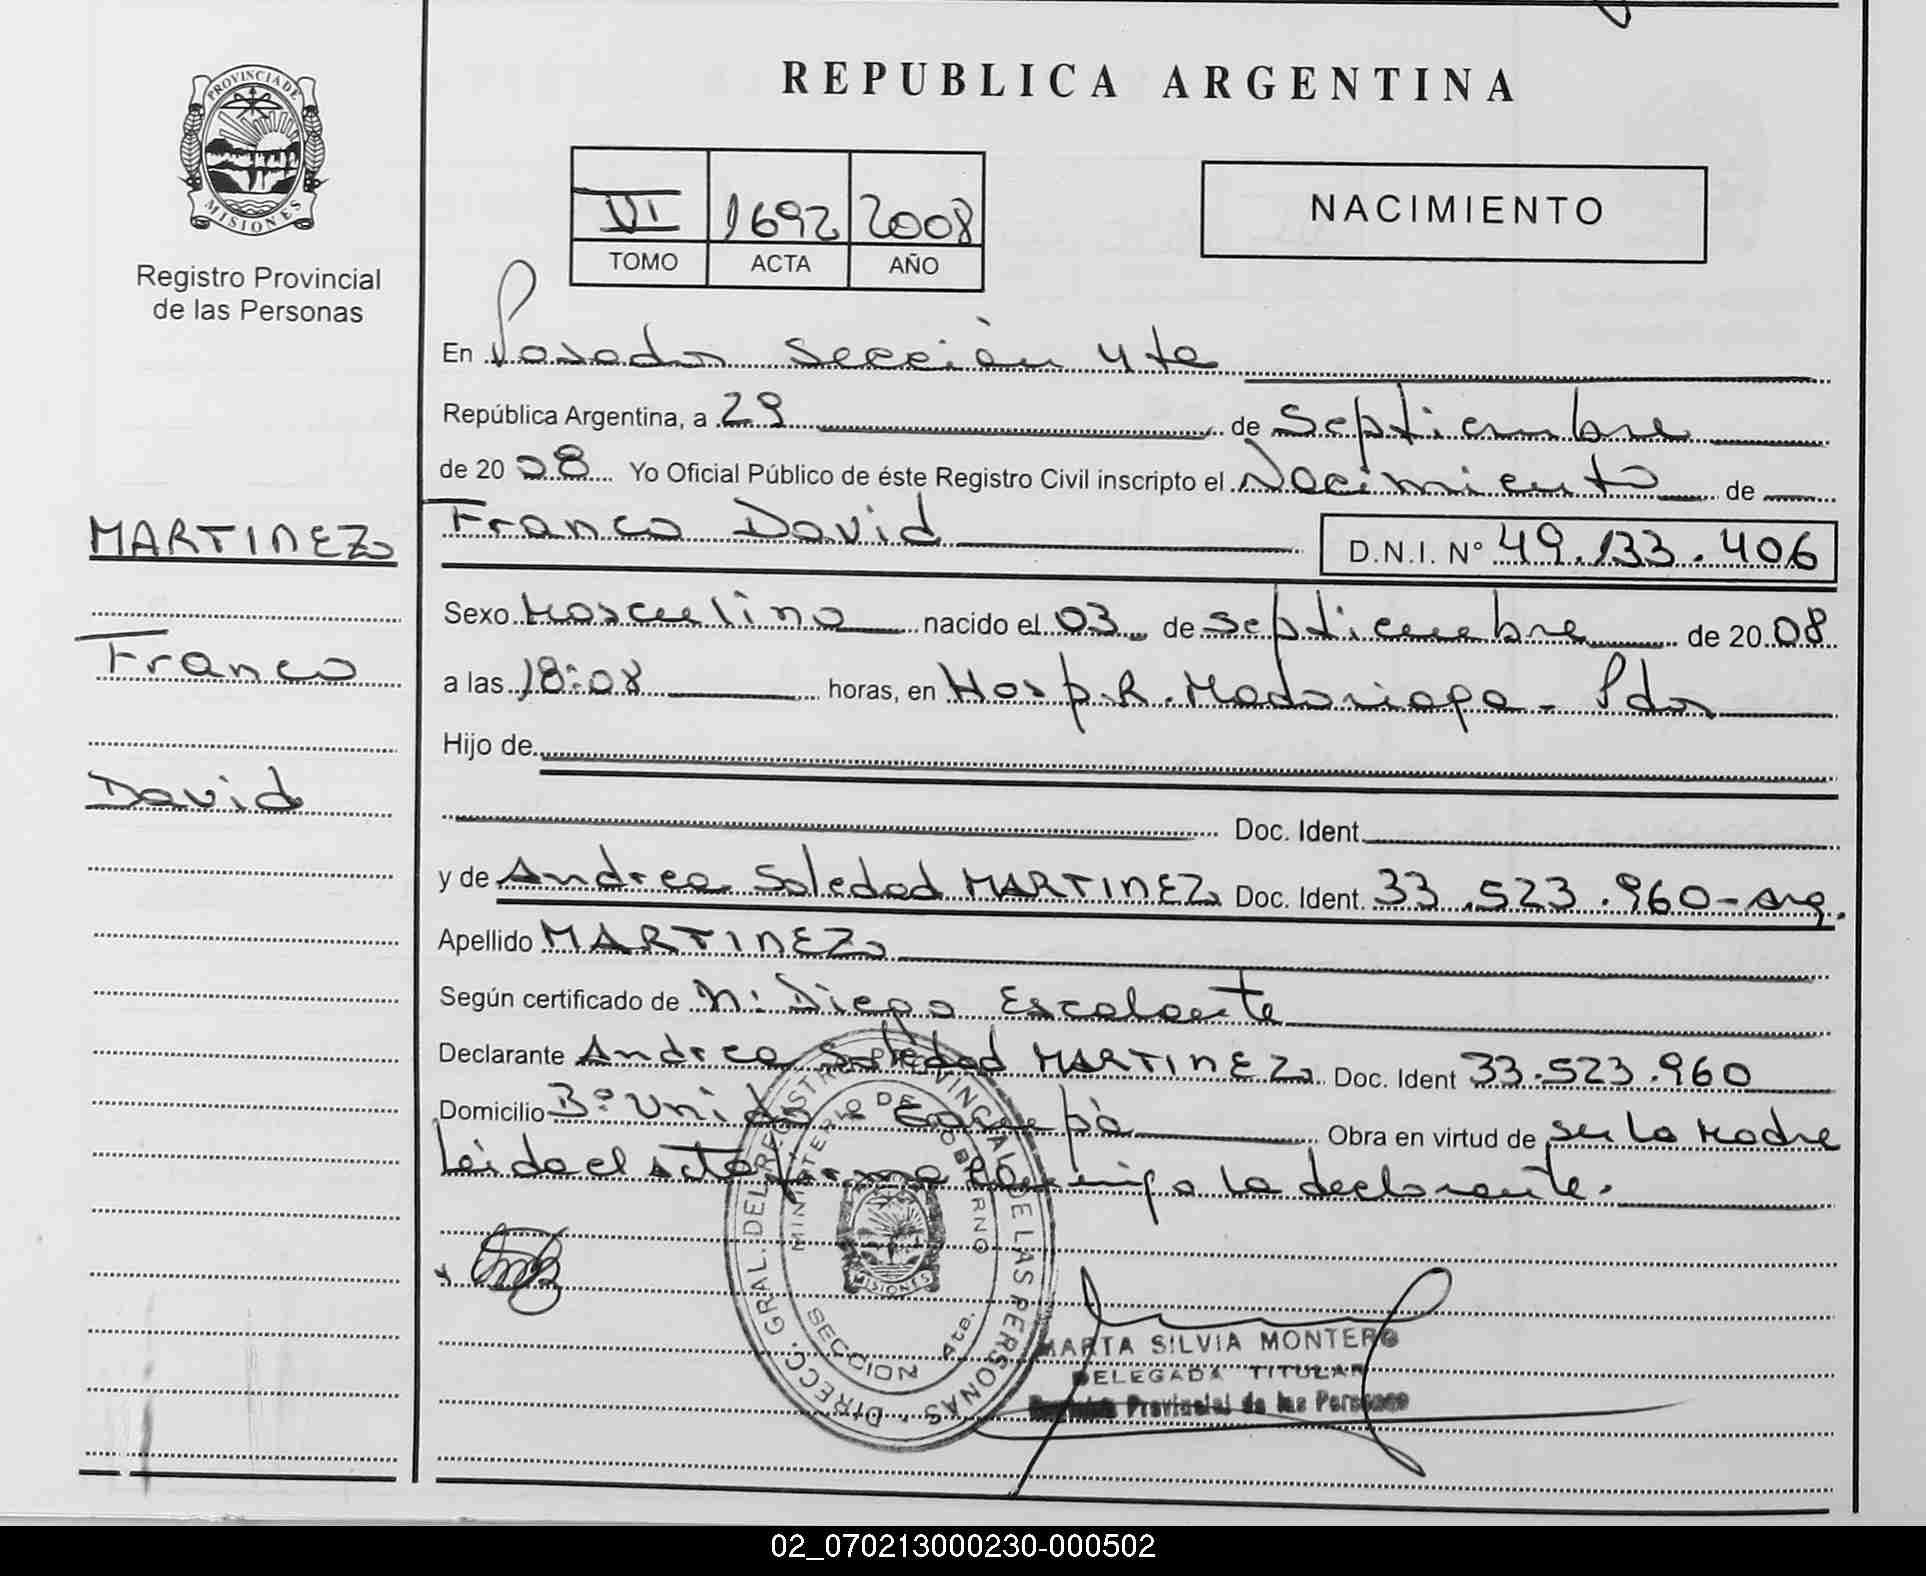 PROVINCIA DE
MISIONES
Registro Provincial
de las Personas
MARTINEZ
Franco
David
REPUBLICA ARGENTINA
VI 1692 2008
TOMO ACTA AÑO
NACIMIENTO
En Posadas Sección 4ta
República Argentina, a 29 de Septiembre
de 2008 Yo Oficial Público de éste Registro Civil inscripto el Nacimiento de
Franco David D.N.I. Nº 49.133.406
Sexo Masculino nacido el 03 de septiembre de 2008
a las 18:08 horas, en Hosp. R. Madariaga - Pdas
Hijo de
Doc. Ident.
y de Andrea Soledad MARTINEZ Doc. Ident. 33.523.960-arg.
Apellido MARTINEZ
Según certificado de M: Diego Escalante
Declarante Andrea Soledad MARTINEZ Doc. Ident 33.523.960
Domicilio Bº Unido - Garupá Obra en virtud de ser la Madre
Leida el acta firma conmigo la declarante.
DIRECC. GRAL. DEL REGISTRO PROVINCIAL DE LAS PERSONAS
MINISTERIO DE GOBIERNO
MISIONES
SECCION 4ta.
MARTA SILVIA MONTERO
DELEGADA TITULAR
Registro Provincial de las Personas
02_070213000230-000502